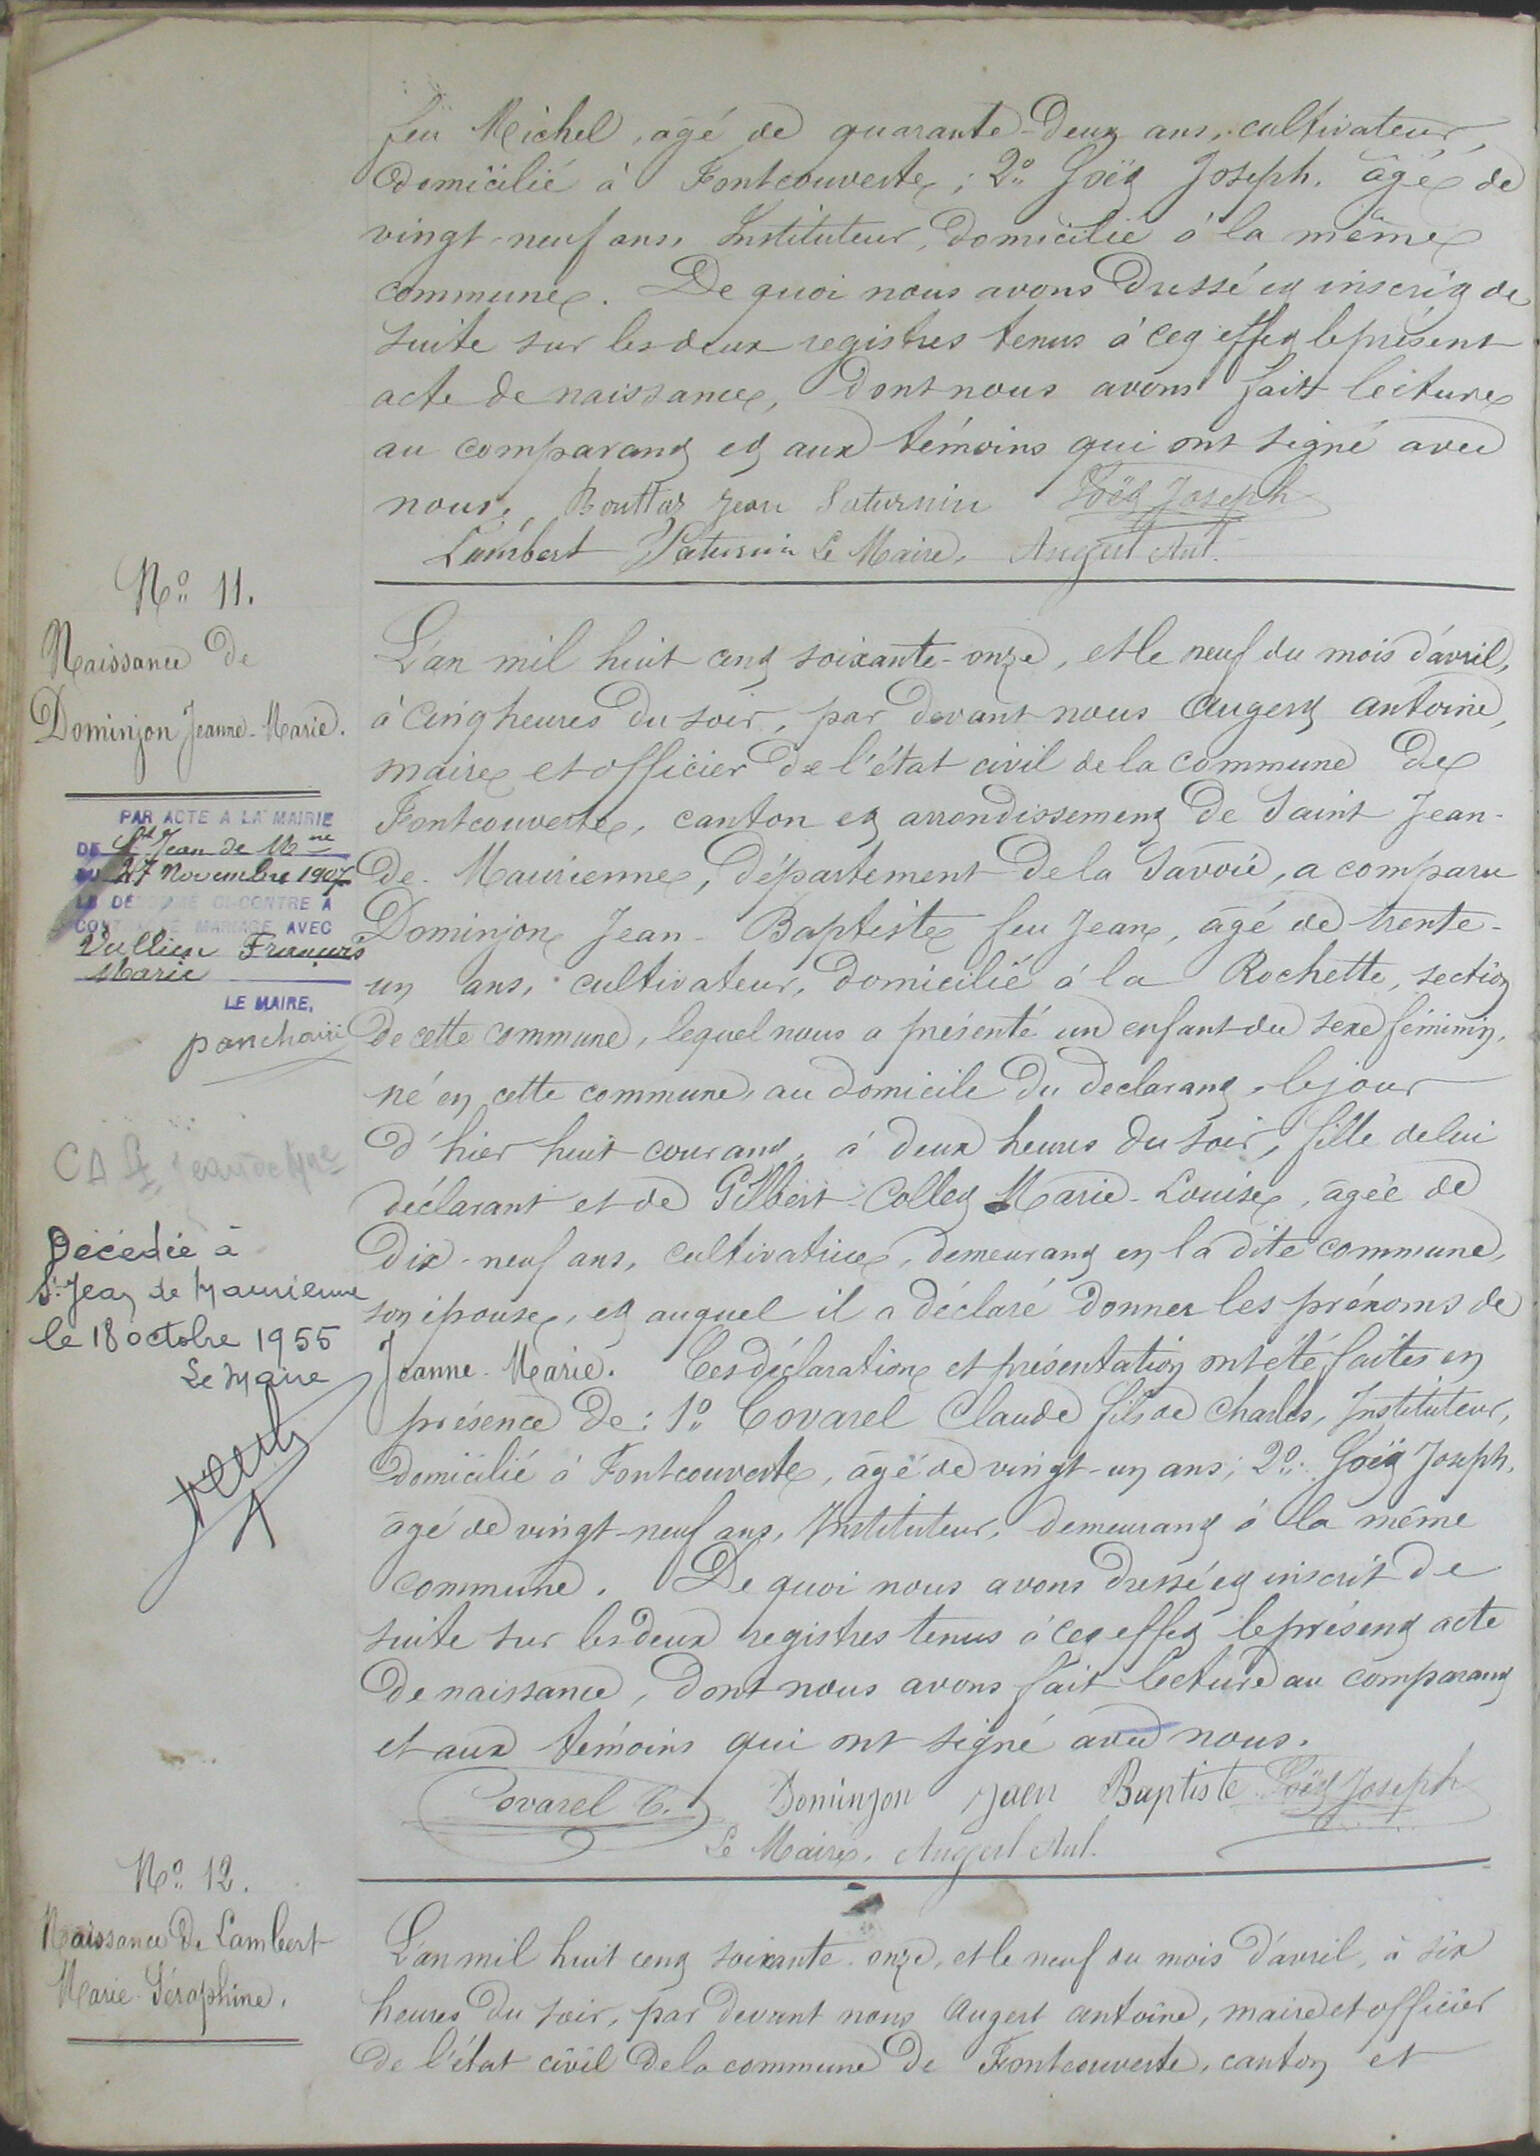 feu Michel, agé de quarante-deux ans, cultivateur,
domicilié à Fontcouverte; 2º Joët Joseph, âgé de
vingt-neuf ans, Instituteur, domicilié à la même
commune. De quoi nous avons dressé et inscrit de
suite sur les deux registres tenus à cet effet le présent
acte de naissance, dont nous avons fait lecture
au comparant et aux témoins qui ont signé avec
nous. Bouttaz Jean Saturnin Joët Joseph
Lambert Saturnin Le Maire, Augert Ant.
Nº 11.
Naissance de
Dominjon Jeanne-Marie.
PAR ACTE A LA MAIRIE
DE St Jean de Mne
DU 27 Novembre 1907
LA DÉNOMMÉE CI-CONTRE A
CONTRACTÉ MARIAGE AVEC
Vullien François
Marie
LE MAIRE,
Décédée à
St Jean de Maurienne
le 18 octobre 1955
Le Maire
L'an mil huit cent soixante-onze, et le neuf du mois d'avril,
à cinq heures du soir, par devant nous Augert Antoine,
maire et officier de l'état civil de la commune de
Fontcouverte, canton et arrondissement de Saint Jean-
de-Maurienne, département de la Savoie, a comparu
Dominjon Jean-Baptiste feu Jean, âgé de trente-
un ans, cultivateur, domicilié à la Rochette, section
de cette commune, lequel nous a présenté un enfant du sexe féminin,
né en cette commune, au domicile du déclarant, le jour
d'hier huit courant, à deux heures du soir, fille de lui
déclarant et de Gilbert-Collet Marie-Louise, âgée de
dix-neuf ans, cultivatrice, demeurant en la dite commune,
son épouse, et auquel il a déclaré donner les prénoms de
Jeanne-Marie. Ces déclaration et présentation ont été faites en
présence de: 1º Covarel Claude fils de Charles, Instituteur,
domicilié à Fontcouverte, âgé de vingt-un ans; 2º Joët Joseph,
âgé de vingt-neuf ans, Instituteur, demeurant à la même
commune. De quoi nous avons dressé et inscrit de
suite sur les deux registres tenus à cet effet le présent acte
de naissance, dont nous avons fait lecture au comparant
et aux témoins qui ont signé avec nous.
Covarel C. Dominjon Jaen Baptiste Joët Joseph
Le Maire, Augert Ant.
Nº 12.
Naissance de Lambert
Marie-Séraphine.
L'an mil huit cent soixante-onze, et le neuf du mois d'avril, à six
heures du soir, par devant nous Augert Antoine, maire et officier
de l'état civil de la commune de Fontcouverte, canton et